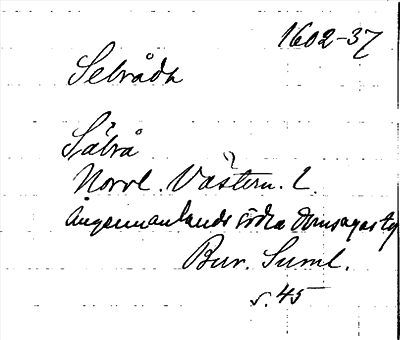 1602-37
Sebrådh
Säbrå
Norrl. Västern. l.
Ångermanlands södra domsagas tg
Bur. Suml.
s. 45